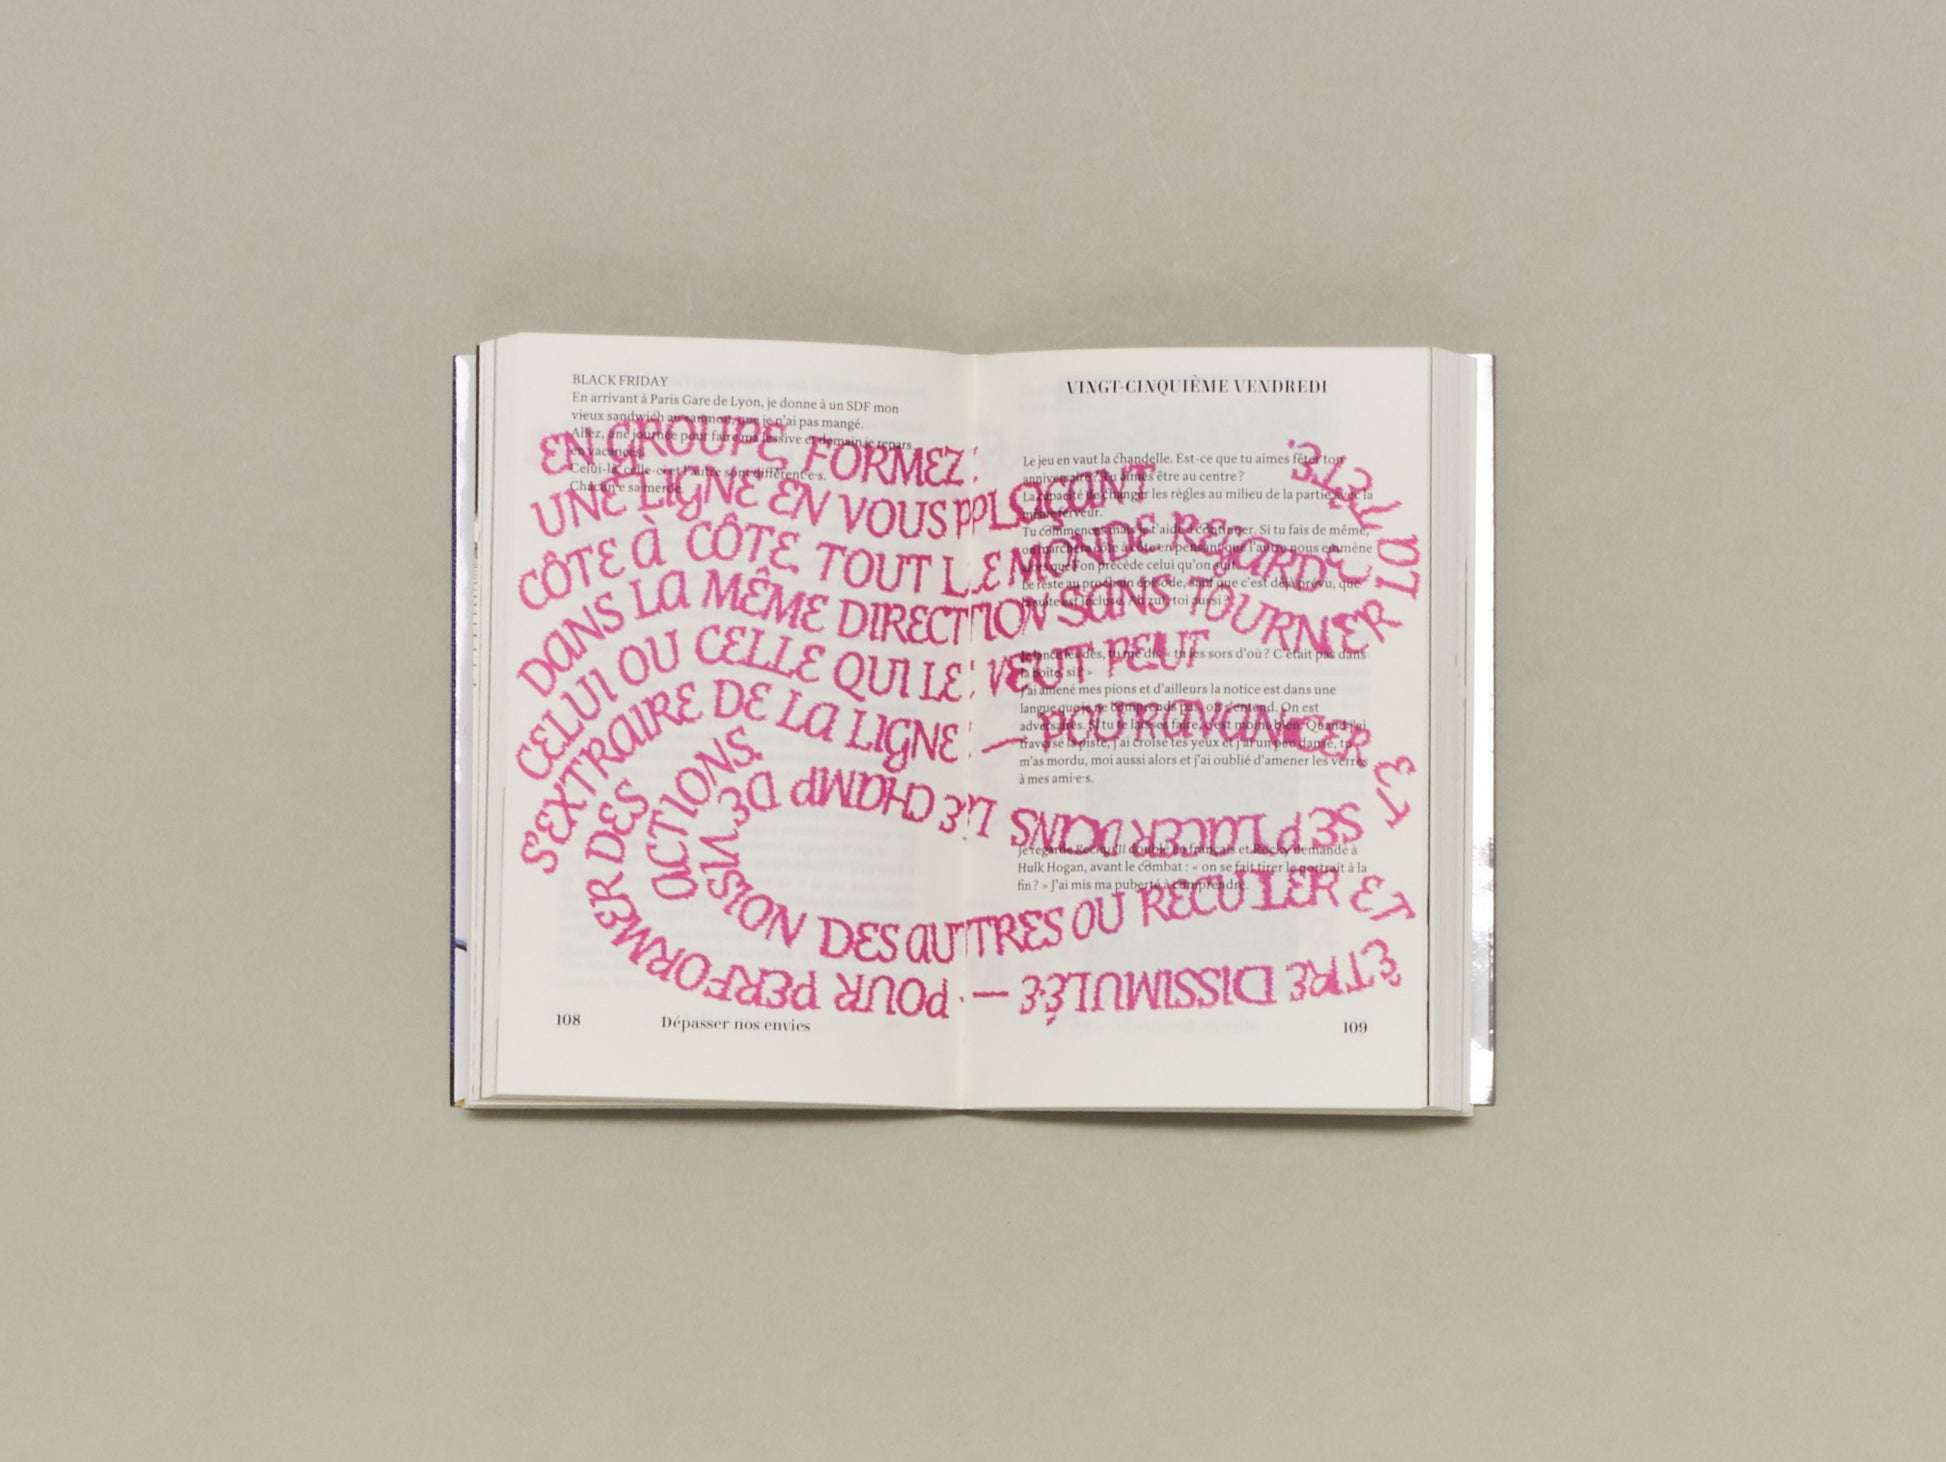 BLACK FRIDAY
En arrivant à Paris Gare de Lyon, je donne à un SDF mon
vieux sandwich au saumon que je n'ai pas mangé.
Allez, une journée pour faire ma lessive et demain je repars
en vacances.
Celui-là, celle-ci et l'autre sont différent·e·s.
Chacun·e sa merde.
108
Dépasser nos envies
VINGT-CINQUIÈME VENDREDI
Le jeu en vaut la chandelle. Est-ce que tu aimes fêter ton
anniversaire ? Tu aimes être au centre ?
La capacité de changer les règles au milieu de la partie avec la
même ferveur.
Tu commences mais je t'aide à continuer. Si tu fais de même,
on marchera côte à côte en pensant que l'autre nous emmène
alors que l'on précède celui qu'on suit.
Le reste au prochain épisode, sauf que c'est déjà prévu, que
la suite est incluse. Ah zut, toi aussi ?
Je lance les dés, tu me dis « tu les sors d'où ? C'était pas dans
la boîte, si ? »
J'ai amené mes pions et d'ailleurs la notice est dans une
langue que je ne comprends pas, on s'entend. On est
adversaires. Si tu te laisses faire, c'est moins bien. Quand j'ai
traversé la piste, j'ai croisé tes yeux et j'ai un peu dansé, tu
m'as mordu, moi aussi alors et j'ai oublié d'amener les verres
à mes ami·e·s.
Je regarde Rocky III doublé en français et Rocky demande à
Hulk Hogan, avant le combat : « on se fait tirer le portrait à la
fin ? » J'ai mis ma puberté à comprendre.
109
EN GROUPE, FORMEZ
UNE LIGNE EN VOUS PLAÇANT
CÔTE À CÔTE. TOUT LE MONDE REGARDE
DANS LA MÊME DIRECTION SANS TOURNER
LA TÊTE.
CELUI OU CELLE QUI LE VEUT PEUT
S'EXTRAIRE DE LA LIGNE — POUR AVANCER ET
SE PLACER DANS LE CHAMP DE VISION DES AUTRES OU RECULER ET
ÊTRE DISSIMULÉ·E — POUR PERFORMER DES
ACTIONS.